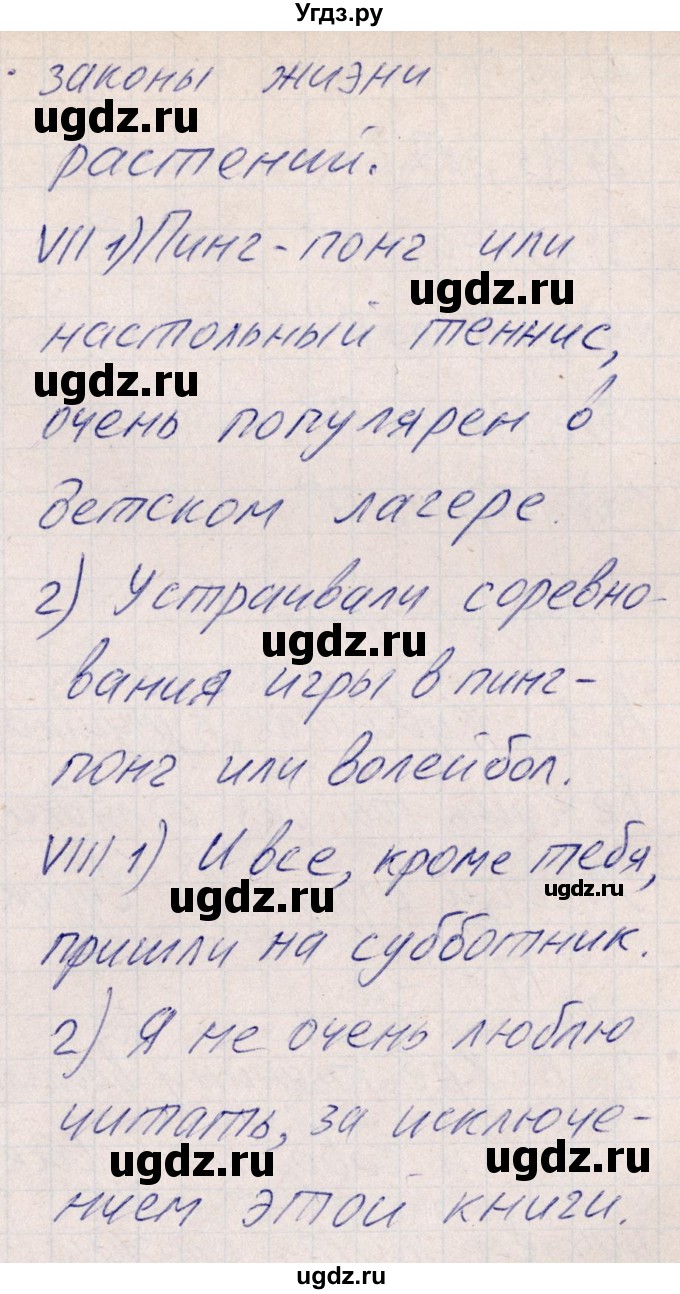 Угдз.ру
законы жизни
ugdz.ru
растений.
VII 1) Пинг-понг или
ugdz.ru
настольный теннис,
ugdz.ru
очень популярен в
детском лагере.
2) Устраивали соревно-
ugdz.ru
вания игры в пинг-
понг или волейбол.
VIII 1) И все, кроме тебя,
ugdz.ru ugdz.ru
пришли на субботник.
2) Я не очень люблю
читать, за исключе-
ugdz.ru ugdz.ru
нием этой книги.
ugdz.ru